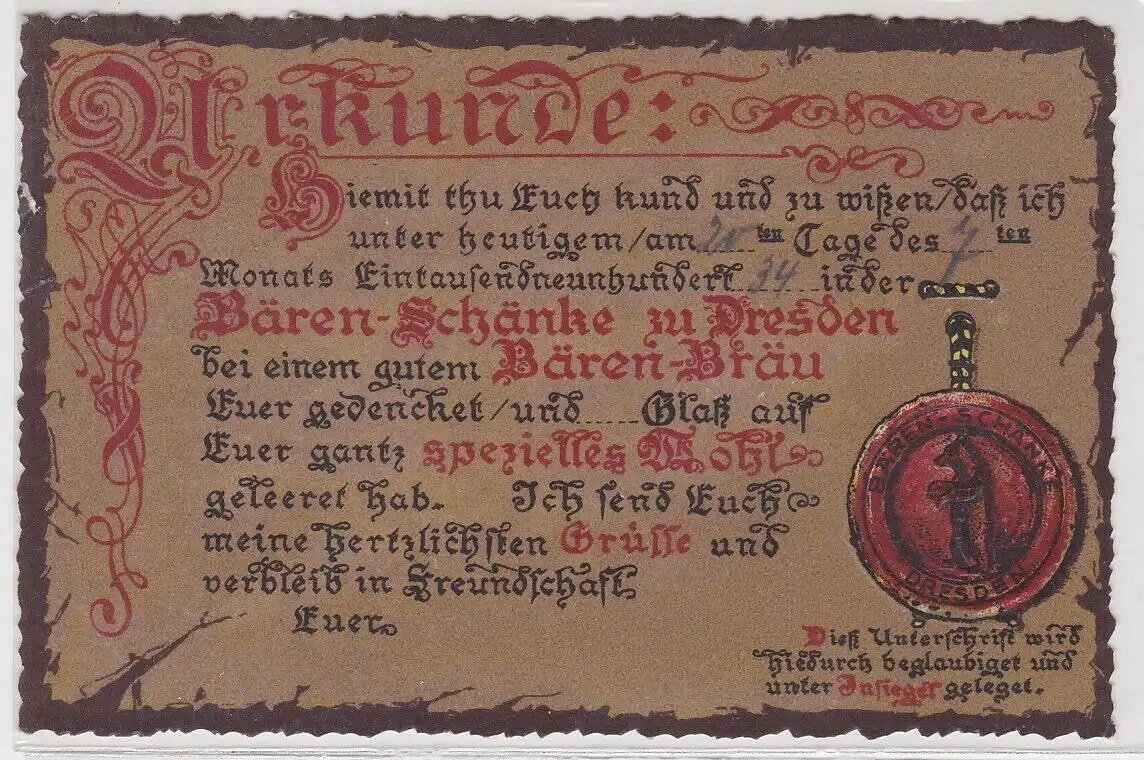 Urkunde:
Hiemit thu Euch kund und zu wißen/daß ich
unter heutigem/am 20 ten Tage des 7 ten
Monats Eintausendneunhundert 34 in der
Bären-Schänke zu Dresden
bei einem gutem Bären-Bräu
Euer gedencket/und..... Glaß auf
Euer gantz spezielles Wohl
geleeret hab. Ich send Euch
meine hertzlichsten Grüsse und
verbleib in Freundschaft
Euer
BÄREN-SCHÄNKE
DRESDEN
Dieß Unterschrift wird
hiedurch beglaubiget und
unter Insiegel geleget.